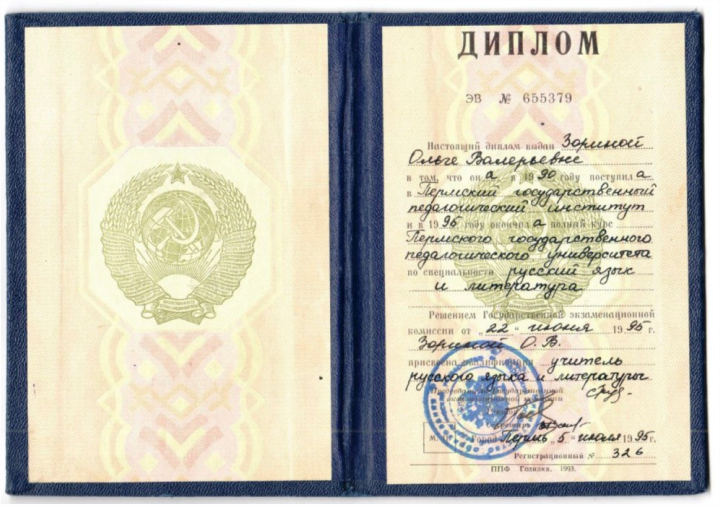 ДИПЛОМ
ЭВ № 655379
Настоящий диплом выдан Зориной
Ольге Валерьевне
в том, что он а в 1990 году поступил а
в Пермский государственный
педагогический институт
и в 1995 году окончил а полный курс
Пермского государственного
педагогического университета
по специальности русский язык
и литература
Решением Государственной экзаменационной
комиссии от „22“ июня 1995 г.
Зориной О. В.
присвоена квалификация учитель
русского языка и литературы
Председатель Государственной
экзаменационной комиссии
Ректор
Секретарь
М. П. Город Пермь „5“ июля 1995 г.
Регистрационный № 326
ППФ Гознака. 1993.